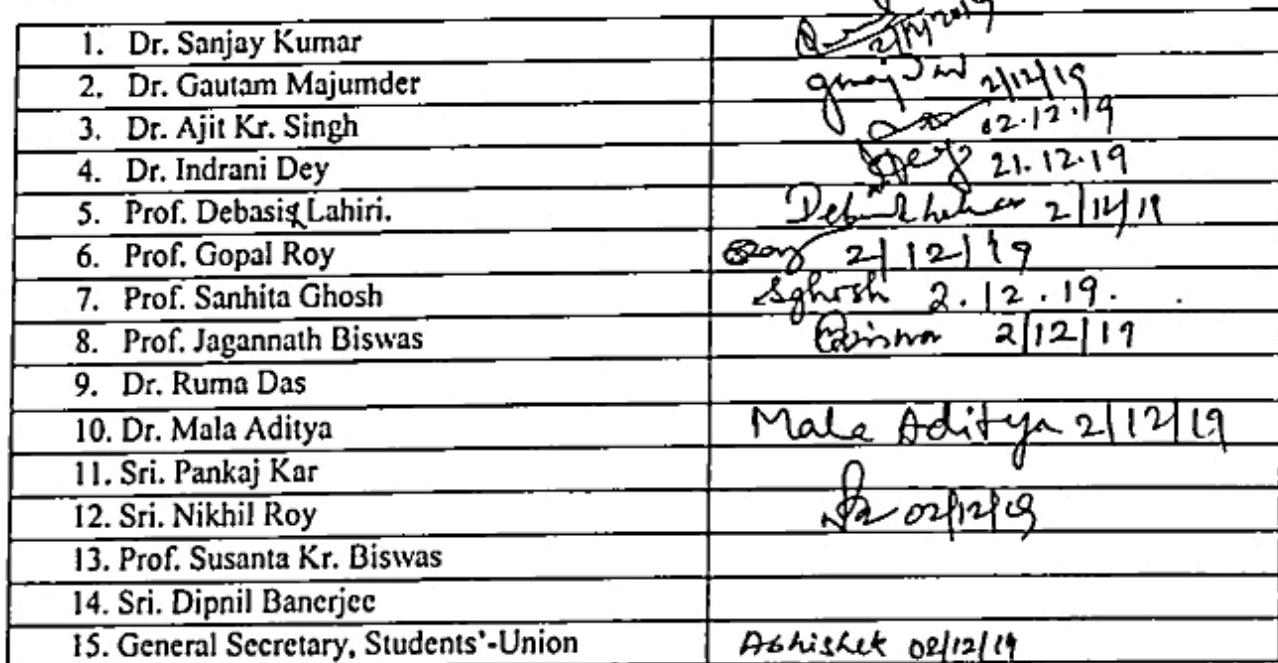 1. Dr. Sanjay Kumar 2/12/2019
2. Dr. Gautam Majumder 2/12/19
3. Dr. Ajit Kr. Singh 02.12.19
4. Dr. Indrani Dey Dey 21.12.19
5. Prof. Debasis Lahiri. 2/12/19
6. Prof. Gopal Roy Roy 2/12/19
7. Prof. Sanhita Ghosh SGhosh 2.12.19.
8. Prof. Jagannath Biswas Biswas 2/12/19
9. Dr. Ruma Das
10. Dr. Mala Aditya Mala Aditya 2/12/19
11. Sri. Pankaj Kar
12. Sri. Nikhil Roy 02/12/19
13. Prof. Susanta Kr. Biswas
14. Sri. Dipnil Banerjee
15. General Secretary, Students'-Union Abhishek 02/12/19